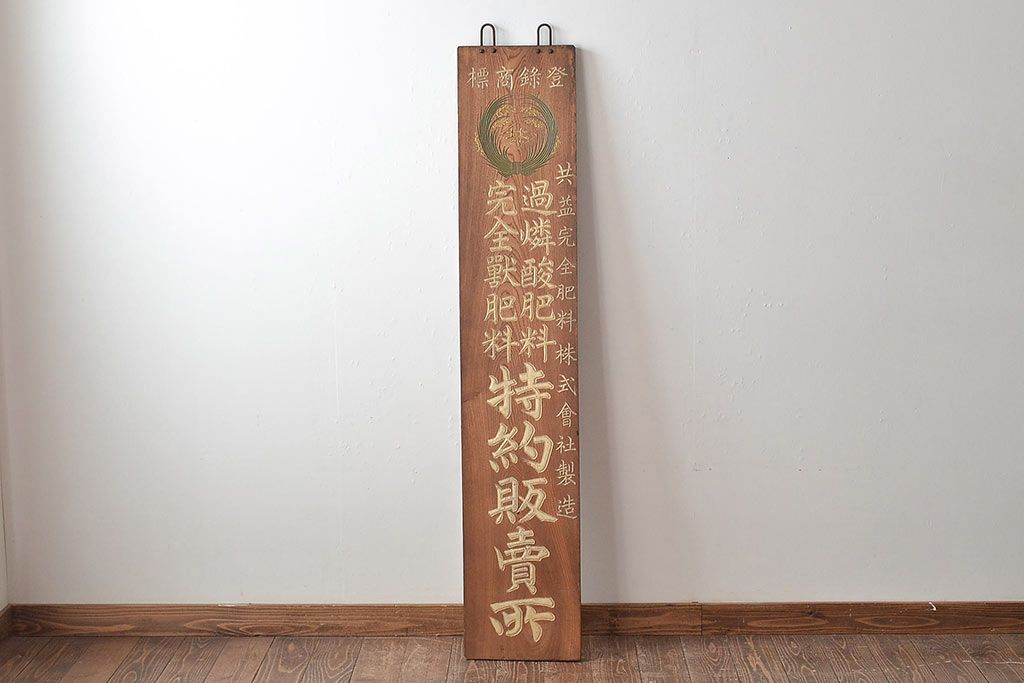 登錄商標
共益完全肥料株式會社製造
過燐酸肥料
完全獸肥料
特約販賣所